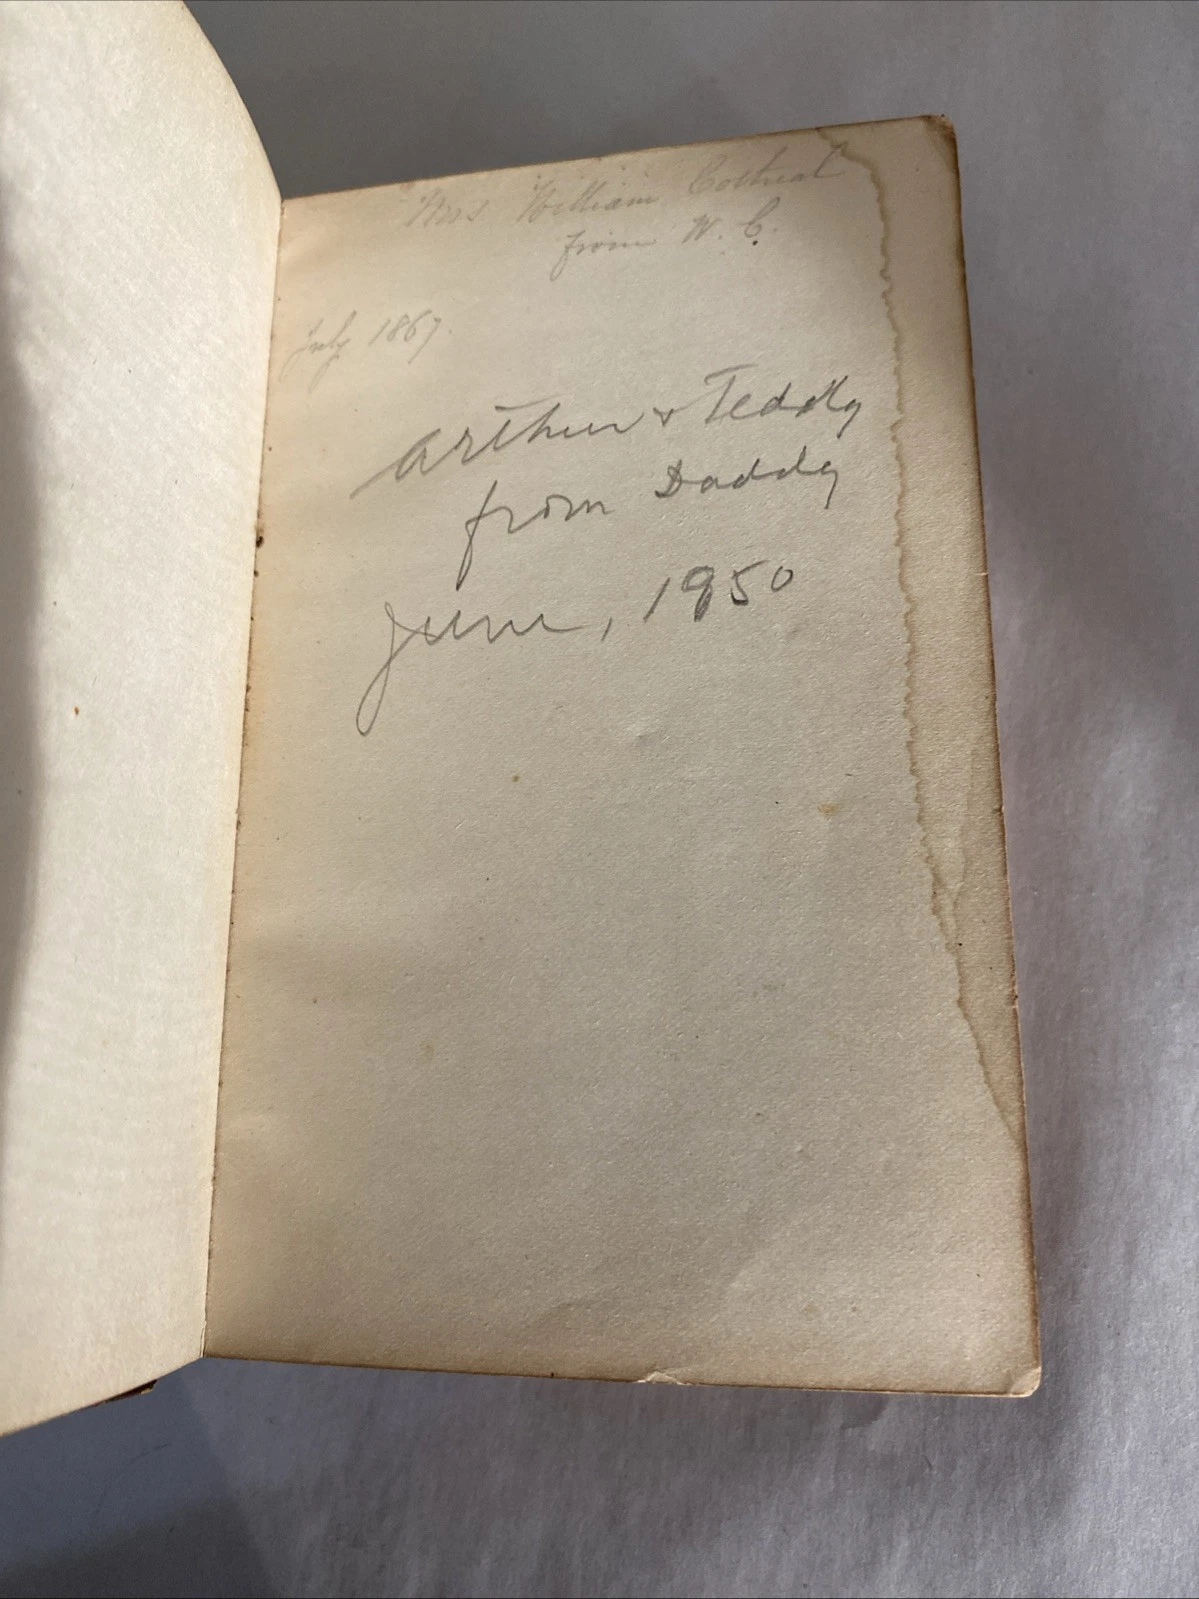 Mrs William Cotheal
from W. C.
July 1867.
Arthur & Teddy
from Daddy
June, 1950